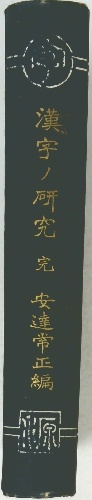 漢字ノ研究 完 安達常正編